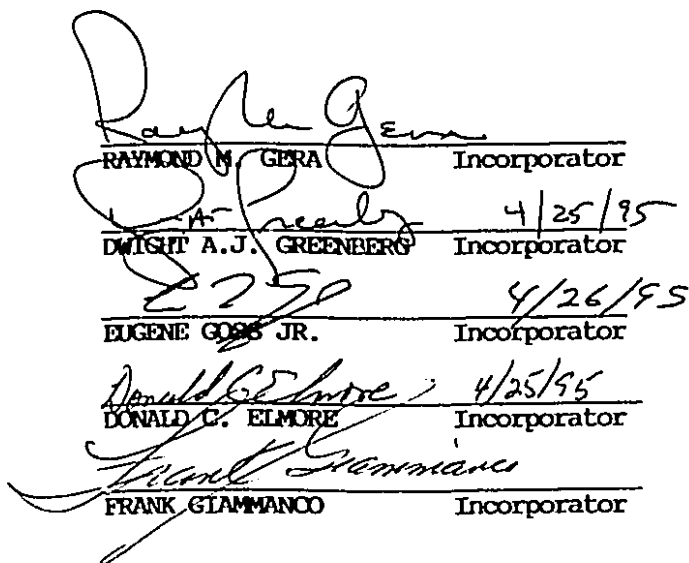 Raym Gera
RAYMOND M. GERA Incorporator
4/25/95
DWIGHT A.J. GREENBERG Incorporator
4/26/95
EUGENE GOSS JR. Incorporator
Donald C Elmore 4/25/95
DONALD C. ELMORE Incorporator
Frank Giammanco
FRANK GIAMMANCO Incorporator